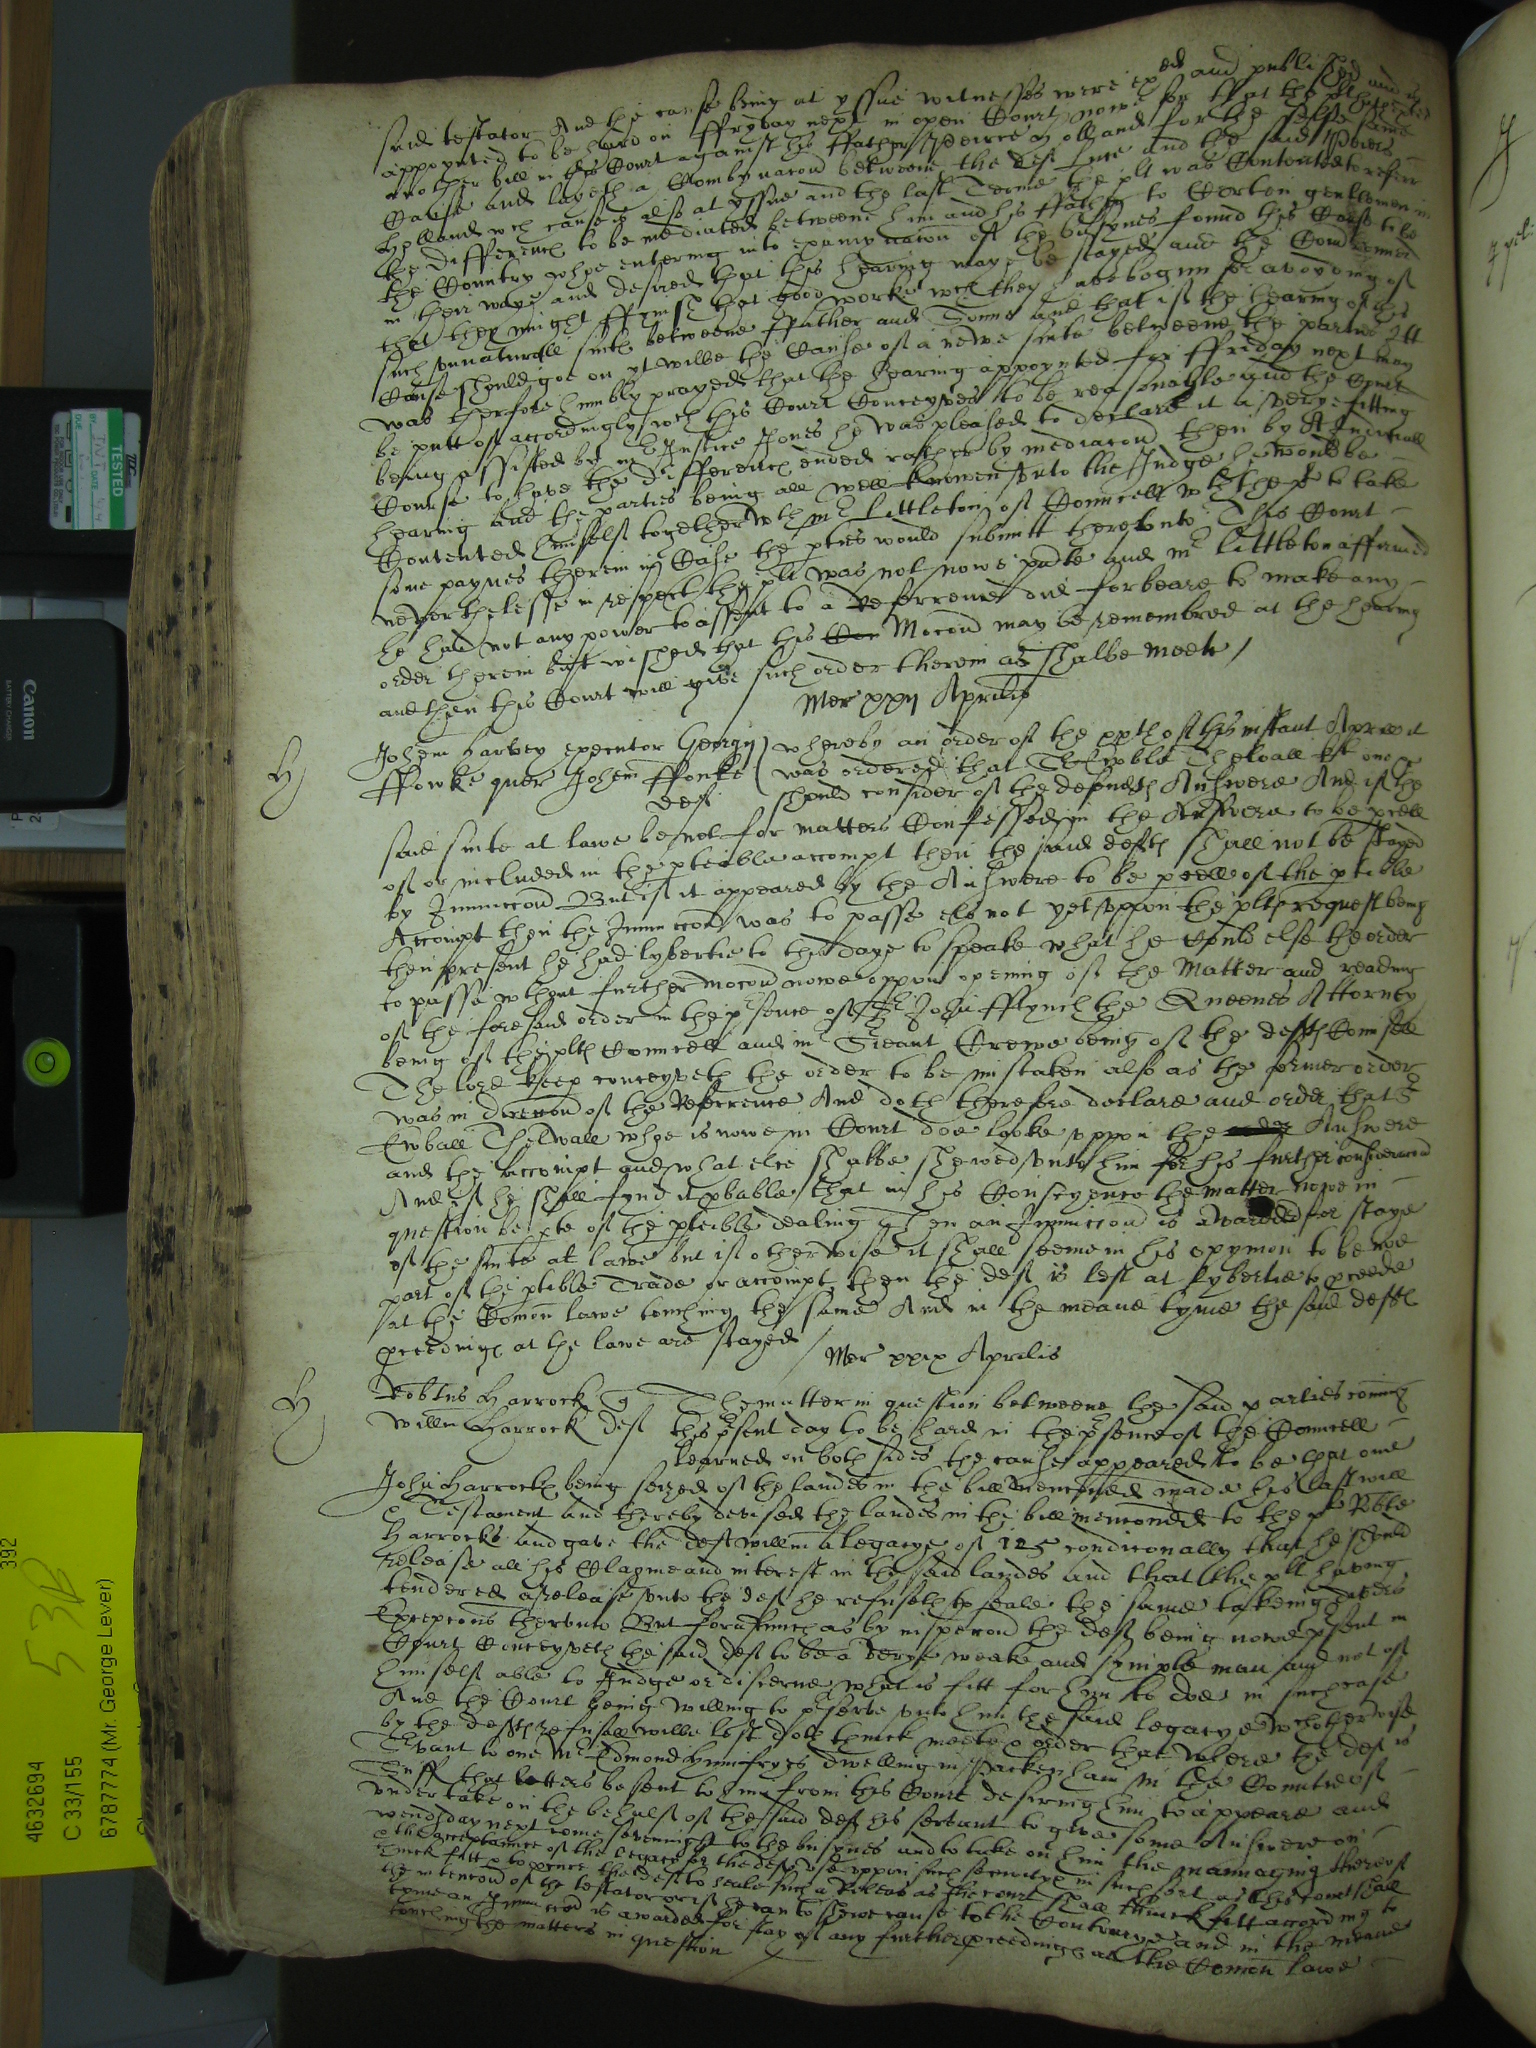 said testator And the cause being at yssue witnesses were exed and published and is
appoynted to be hard on ffryday next in open Court nowe for that the plt hath
another bill in this Court against his ffather Peirce Holland for the selfe same
Cause and layeth a Combynacon betweene the deft and the said Peirce
Holland wch cause is also at yssue and the last Terme the plt was Contented to referr
the difference to be mediated betweene him and his ffather to Certen gentlemen in
the Country whoe entering into examynacon of the busynes found this Cause to be
in their waye and desired that this hearing maye be stayed and the
that they might ffynish that good worke wch they have begun for avoyding of
such unnaturall suite betweene ffather and Sonne and that if the hearing of this
Cause should goe on yt wilbe the Cause of a newe suite betweene the parties Itt
was therfore humbly prayed that the hearing appoynted for ffriday next may
be putt of accordingly wch this Court Conceyved to be reasonable and the Court
being assisted by mr Justice Jones he was pleased to declare it a verye fitting
Course to have the difference ended rather by mediacon then by
hearing and the parties being all well knowen unto the Judge he would be
Contented himself together wth mr Littleton of Councell wth the plt to take
some paynes therein in Case the pties would submitt therunto This Court
neverthelesse in respect the plt was not nowe pnte and mr Littleton affirmed
he had not any power to assent to a referrence did forbeare to make any
order therein but wished that his Mocon may be remembred at the hearing
and then this Court will give such order therein as shalbe meete /
Mer xxij Aprilis
Johem Harvey executor Georgij
ffowke quer Johem ffouke
deft
whereby an order of the xxth of this instant Aprill it
was ordered that Sr Eubble Thelwall kt one
should consider of the defendts Answere And if the
said suite at lawe be not for matters Confessed in the Answere to be pcell
of or included in the ptible accompt then the said deft shall not be stayed
by Iniunccon But if it appeared by the Answere to be pcell of the ptible
Accompt then the Iniunccon was to passe els not yet uppon the plts request being
then present he had lybertie to this daye to speake what he Could else the order
to passe wthout further mocon nowe uppon opening of the Matter and reading
of the foresaid order in the psence of Sr John ffynch the Queenes Attorney
being of the plts Councell and mr Sieant Crewe being of the defts Counsell
The lord keep conceyveth the order to be mistaken also as the former order
was in direccon of the Referrence And doth therefore declare and order that Sr
Ewball Thelwall whoe is nowe in Court doe looke uppon the Answere
and the accompt and what else shalbe shewed unto him for his further consideracon
And if he shall fynd it pbable that in his Conscyence the matter nowe in
question be pte of the ptible dealing Then an Iniunccon is awarded for staye
of the suite at lawe but if otherwise it shall seeme in his opynion to be noe
part of the ptible Trade or accompt then the deft is left at lybertie to pceede
at the Comon lawe touching the same And in the meane tyme the said defts
pceedings at the lawe are stayed /
Mer xxix Aprilis
Robtus Harrock q
Willm Harrock deft
The matter in question betweene the said parties coming
this psent day to be hard in the psence of the Councell
learned on both sides the cause appeared to be that one
John Harrock being seized of the landes in the bill mencioned made his last will
& Testament and thereby devised the landes in the bill mencioned to the plt Robte
Harrocke and gave the deft Willm a legacye of 125 condiconally that he should
release all his Clayme and interest in the said landes and that the plt having
tendered a release unto the deft he refuseth to seale the same takeing
Excepcons therunto But forasmuch as by inspeccon the deft being nowe psent in
Court Conceyveth the said deft to be a verye weake and symple man and not of
himself able to Judge or discerne what is fitt for him to doe in such case
And the Court being willing to pserve unto him the said legacye wch otherwise
by the defts refusall wilbe lost doth thinck meete & order that where the deft is
Tenant to one Mr Edmond Humfryes dwelling in Packenham in the Countie of
Suff that letters be sent to him from this Court desiring him to appeare and
undertake on the behalf of the said deft his servant to give some Answere on
wendsday next come sevennight to the busynes and to take on him the mannaging thereof
& the acceptance of the legacye for the defts use uppon such securitye in such sort as this court shall
thinck fitt & to pcure the deft to seale such a Release as the court shall thinck fitt according to
the intencon of the testator or if he can to shewe cause to the Contrarye and in the meane
tyme an Iniunccon is awarded for stay of any further pceedings at the Comon lawe
touching the matters in question
TESTED
Canon
BATTERY CHARGER
392
53B
4632694
C 33/155
6787774 (Mr. George Lever)